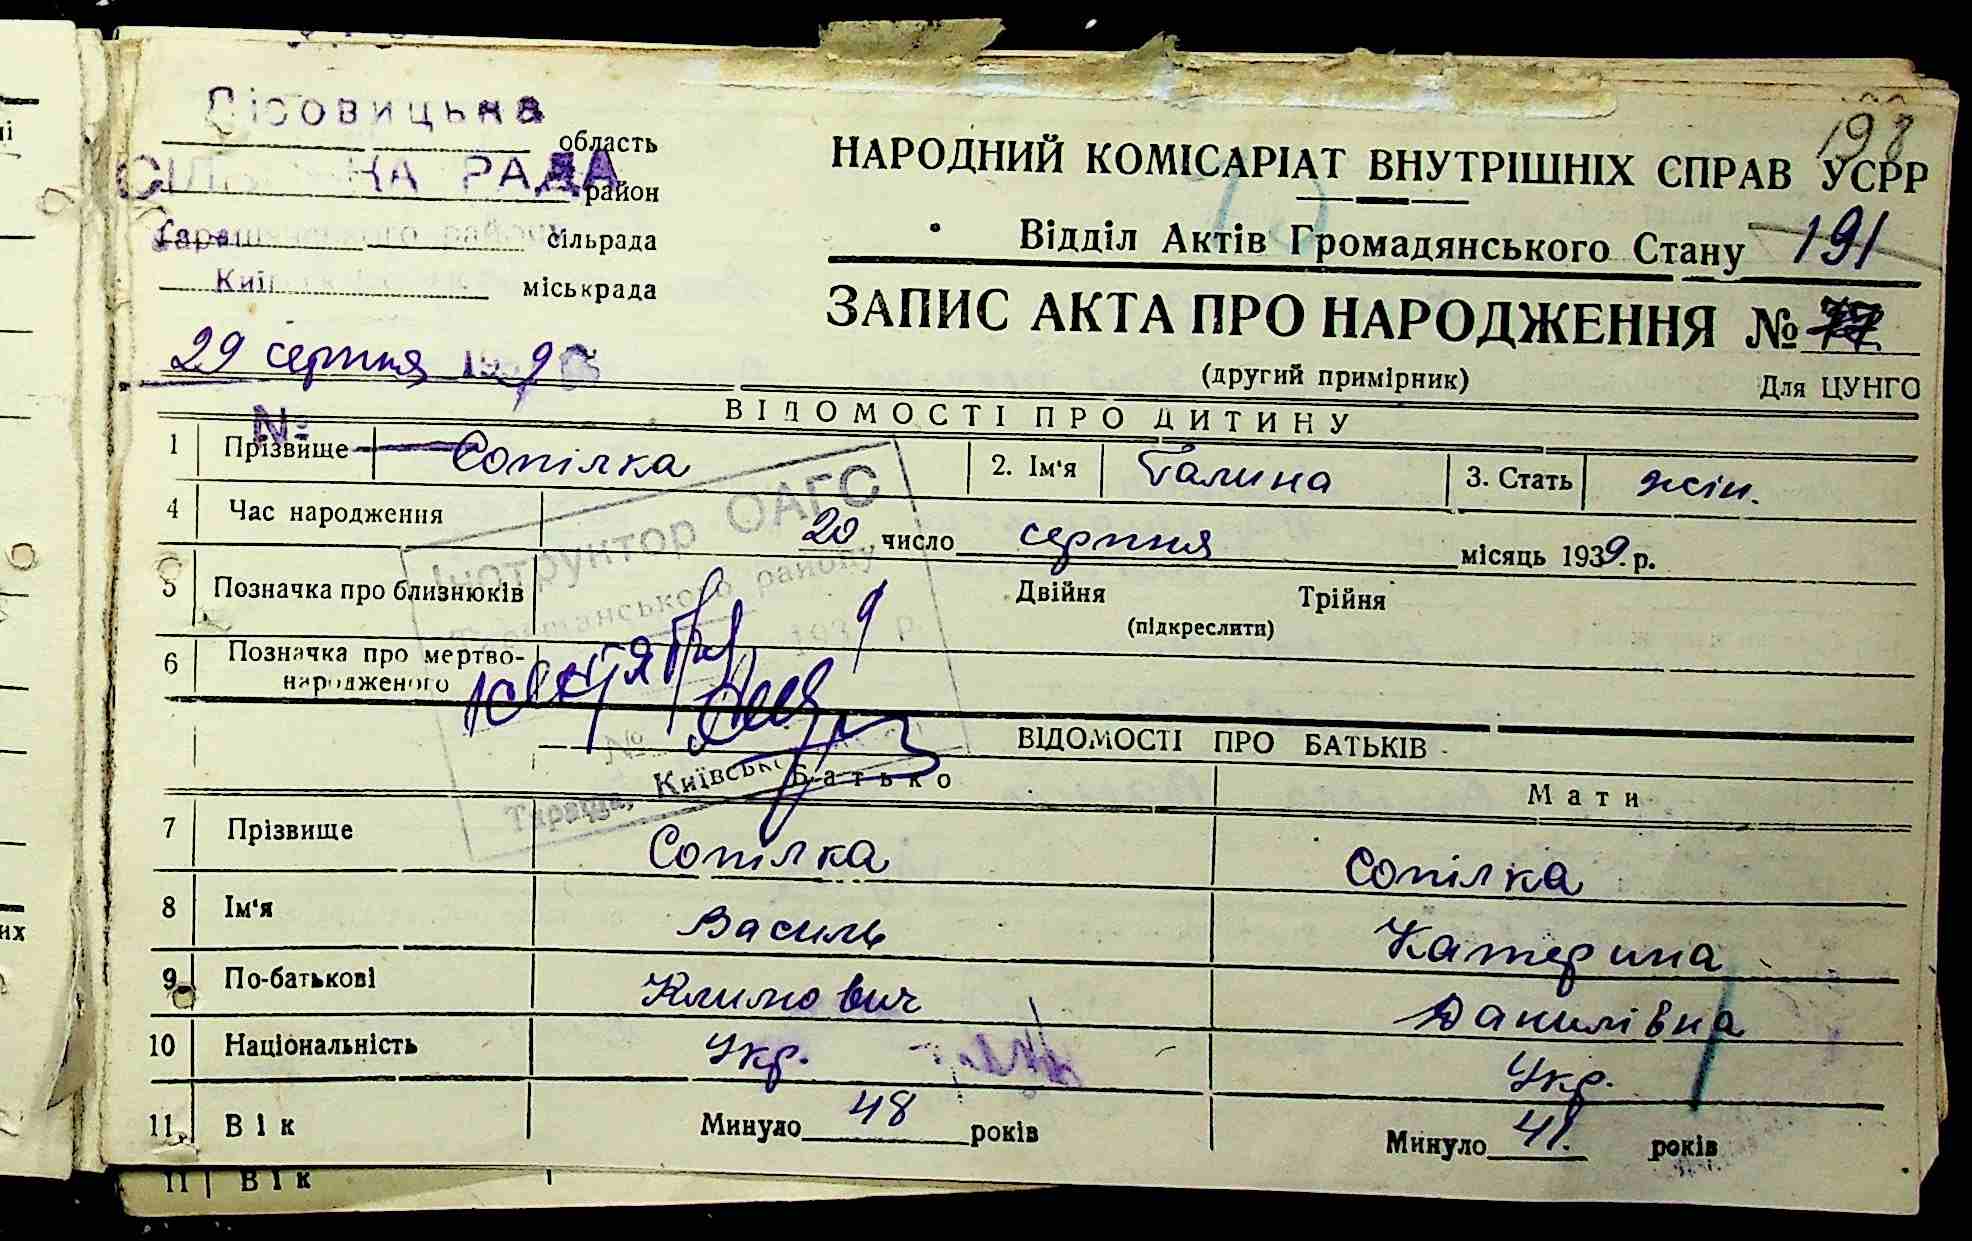 198
Лісовицька
область
СІЛЬСЬКА РАДА
район
Таращанського району
сільрада
Київ
міськрада
НАРОДНИЙ КОМІСАРІАТ ВНУТРІШНІХ СПРАВ УСРР
Відділ Актів Громадянського Стану 191
ЗАПИС АКТА ПРО НАРОДЖЕННЯ № 77
(другий примірник) Для ЦУНГО
29 серпня 9
№
ВІДОМОСТІ ПРО ДИТИНУ
1 Прізвище Сопілка 2. Ім'я Галина 3. Стать жін.
4 Час народження 20 число серпня місяць 1939 р.
Інструктор ОАГС
Таращанського району
193 9 р.
№
Тараща, Київськ
5 Позначка про близнюків Двійня Трійня
(підкреслити)
6 Позначка про мертво-
народженого
ВІДОМОСТІ ПРО БАТЬКІВ
Батько Мати
7 Прізвище Сопілка Сопілка
8 Ім'я Василь Катерина
9 По-батькові Климович Данилівна
10 Національність Укр. Укр.
11 Вік Минуло 48 років Минуло 41 років
11 Вік
их